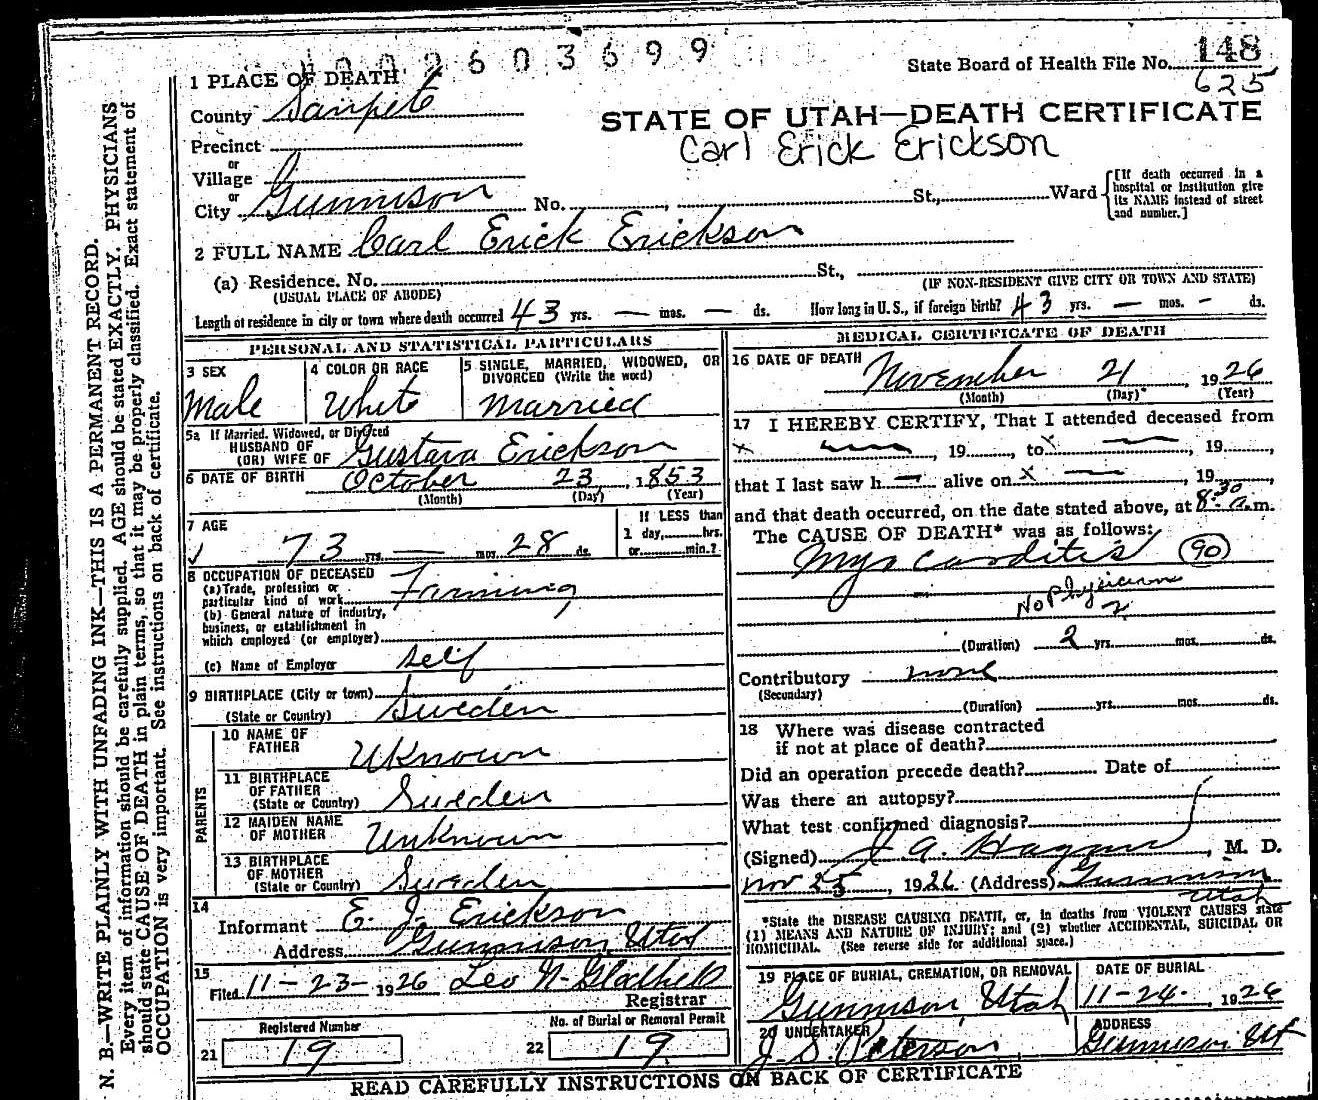 0 0 2 6 0 3 6 9 9
State Board of Health File No. 148
625
1 PLACE OF DEATH
County Sanpete
STATE OF UTAH—DEATH CERTIFICATE
Carl Erick Erickson
Precinct
or
Village
or
City Gunnison No. , St., Ward
[If death occurred in a hospital or institution give its NAME instead of street and number.]
2 FULL NAME Carl Erick Erickson
(a) Residence. No. St.,
(USUAL PLACE OF ABODE) (IF NON-RESIDENT GIVE CITY OR TOWN AND STATE)
Length of residence in city or town where death occurred 43 yrs. — mos. — ds. How long in U. S., if foreign birth? 43 yrs. — mos. - ds.
PERSONAL AND STATISTICAL PARTICULARS
3 SEX
Male
4 COLOR OR RACE
White
5 SINGLE, MARRIED, WIDOWED, OR DIVORCED (Write the word)
Married
5a If Married, Widowed, or Divorced
HUSBAND OF
(OR) WIFE OF Gustava Erickson
6 DATE OF BIRTH October 23, 1853
(Month) (Day) (Year)
7 AGE
73 yrs. — mos. 28 ds.
If LESS than
1 day, hrs.
or min.?
8 OCCUPATION OF DECEASED
(a) Trade, profession or
particular kind of work Farming
(b) General nature of industry,
business, or establishment in
which employed (or employer)
(c) Name of Employer Self
9 BIRTHPLACE (City or town)
(State or Country) Sweden
PARENTS
10 NAME OF
FATHER Uknown
11 BIRTHPLACE
OF FATHER
(State or Country) Sweden
12 MAIDEN NAME
OF MOTHER Unknown
13 BIRTHPLACE
OF MOTHER
(State or Country) Sweden
14
Informant E. J. Erickson
Address Gunnison Utah
15
Filed 11-23- 1926 Leo N.
Registrar
Registered Number
21 19
No. of Burial or Removal Permit
22 19
MEDICAL CERTIFICATE OF DEATH
16 DATE OF DEATH November 21, 1926
(Month) (Day) (Year)
17 I HEREBY CERTIFY, That I attended deceased from
x —, 19, to x —, 19,
that I last saw h — alive on x —, 19,
and that death occurred, on the date stated above, at 8:30 a.m.
The CAUSE OF DEATH* was as follows:
Myocarditis 90
No Physician
2
(Duration) 2 yrs. mos. ds.
Contributory none
(Secondary)
(Duration) yrs. mos. ds.
18 Where was disease contracted
if not at place of death?
Did an operation precede death? Date of
Was there an autopsy?
What test confirmed diagnosis?
(Signed) J A. Hagan, M. D.
Nov 25, 1926 (Address) Gunnison
Utah
*State the DISEASE CAUSING DEATH, or, in deaths from VIOLENT CAUSES state
(1) MEANS AND NATURE OF INJURY; and (2) whether ACCIDENTAL, SUICIDAL OR
HOMICIDAL. (See reverse side for additional space.)
19 PLACE OF BURIAL, CREMATION, OR REMOVAL
Gunnison, Utah
DATE OF BURIAL
11-24-, 1926
20 UNDERTAKER
J. S. Peterson
ADDRESS
Gunnison Ut
READ CAREFULLY INSTRUCTIONS ON BACK OF CERTIFICATE
N. B.—WRITE PLAINLY WITH UNFADING INK—THIS IS A PERMANENT RECORD.
Every item of information should be carefully supplied. AGE should be stated EXACTLY. PHYSICIANS
should state CAUSE OF DEATH in plain terms, so that it may be properly classified. Exact statement of
OCCUPATION is very important. See instructions on back of certificate.